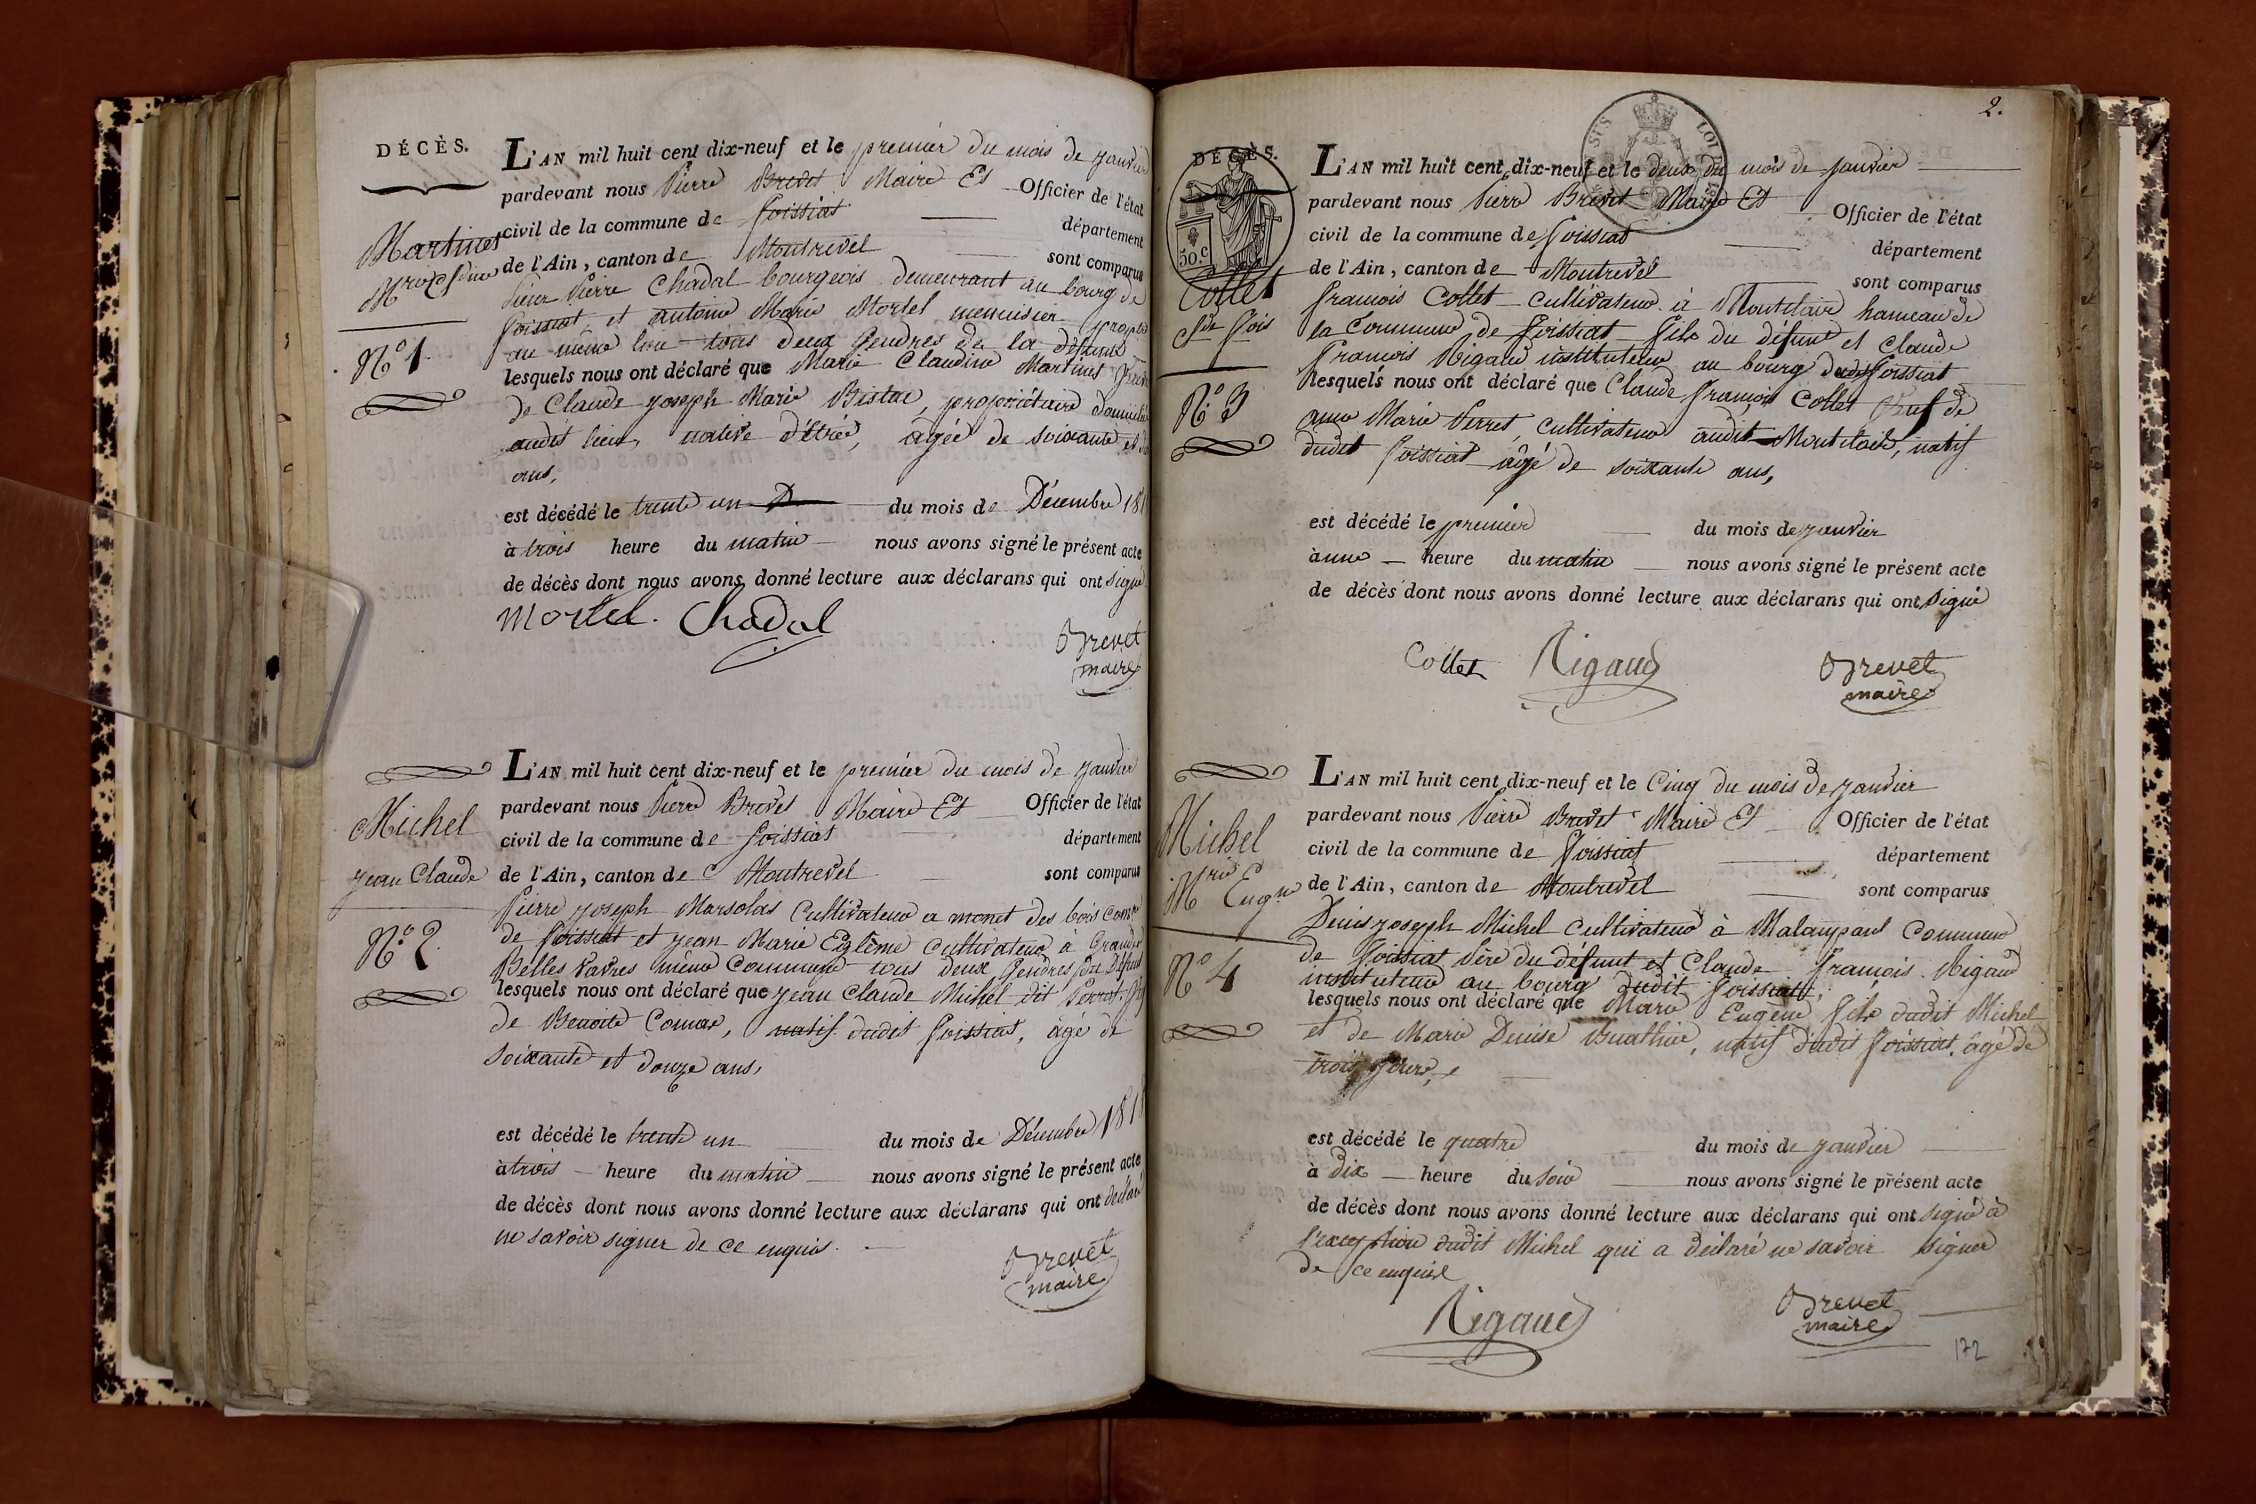 DÉCÈS.
Martinet
Mie Cline
N.° 1.
L'AN mil huit cent dix-neuf et le premier du mois de janvier
pardevant nous Pierre Brevet Maire Et Officier de l'état
civil de la commune de foissiat département
de l'Ain, canton de Montrevel sont comparus
Sieur Pierre Chadal bourgeois demeurant au bourg de
foissiat et antoine Marie Mortel menuisier
au même lieu tous deux Gendres de la défunte
lesquels nous ont déclaré que Marie Claudine Martinet
de Claude joseph Marie Bistac, propriétaire
audit lieu, native d'étrée, âgée de soixante et
ans,
est décédé le trente un du mois de Décembre 181
à trois heure du matin nous avons signé le présent acte
de décès dont nous avons donné lecture aux déclarans qui ont signé
Mortel. Chadal
Brevet
maire
Michel
jean Claude
N.° 2.
L'AN mil huit cent dix-neuf et le premier du mois de janvier
pardevant nous Pierre Brevet Maire Et Officier de l'état
civil de la commune de foissiat département
de l'Ain, canton de Montrevel sont comparus
Pierre joseph Marsolas Cultivateur a monet des bois com.ne
de foissiat et jean Marie cultivateur à Grandes
Belles vavres même Commune tous deux Gendres du Défunt
lesquels nous ont déclaré que jean Claude Michel dit Perret
de Benoite Comas, natif dudit foissiat, âgé de
soixante et douze ans,
est décédé le trente un du mois de Décembre 1818
à trois heure du matin nous avons signé le présent acte
de décès dont nous avons donné lecture aux déclarans qui ont déclaré
ne savoir signer de ce enquis.
Brevet
maire
2.
DÉCÈS.
50.C
Collet
Cde fois
N.° 3
L'AN mil huit cent dix-neuf et le deux du mois de janvier
pardevant nous Pierre Brevet Maire Et Officier de l'état
civil de la commune de foissiat département
de l'Ain, canton de Montrevel sont comparus
francois Collet cultivateur à Montclair hameau de
la Commune de foissiat fils du défunt et Claude
francois Rigaud instituteur au bourg dudit foissiat
lesquels nous ont déclaré que Claude francois Collet Veuf de
anne Marie Perret cultivateur audit Montclair, natif
dudit foissiat âgé de soixante ans,
est décédé le premier du mois de janvier
à une heure du matin nous avons signé le présent acte
de décès dont nous avons donné lecture aux déclarans qui ont signé
Collet Rigaud
Brevet
maire
Michel
Mrie Eugne
N.° 4
L'AN mil huit cent dix-neuf et le Cinq du mois de janvier
pardevant nous Pierre Brevet Maire Et Officier de l'état
civil de la commune de foissiat département
de l'Ain, canton de Montrevel sont comparus
Denis joseph Michel Cultivateur à Malaupaux Commune
de foissiat Père du défunt et Claude francois Rigaud
instituteur au bourg dudit foissiat,
lesquels nous ont déclaré que Marie Eugène fils dudit Michel
et de Marie Denise Buathier, natif dudit foissiat âgé de
trois jours,
est décédé le quatre du mois de janvier
à dix heure du soir nous avons signé le présent acte
de décès dont nous avons donné lecture aux déclarans qui ont signé à
l'exception dudit Michel qui a déclaré ne savoir signer
de ce enquis
Rigaud
Brevet
maire
172